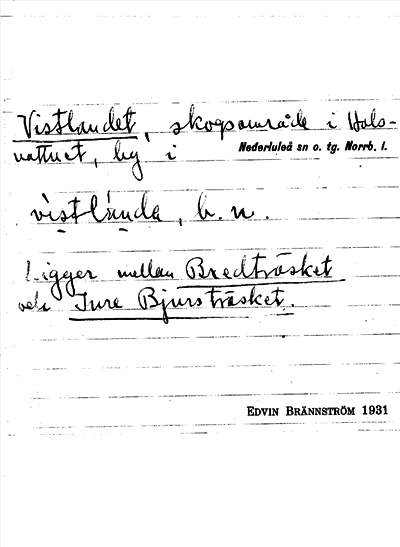 Vistlandet, skogsområde i Hols-
vattnet, by i Nederluleå sn o. tg. Norrb. l.
vistlánda, b. n.
Ligger mellan Bredträsket
och Inre Bjursträsket.
EDVIN BRÄNNSTRÖM 1931